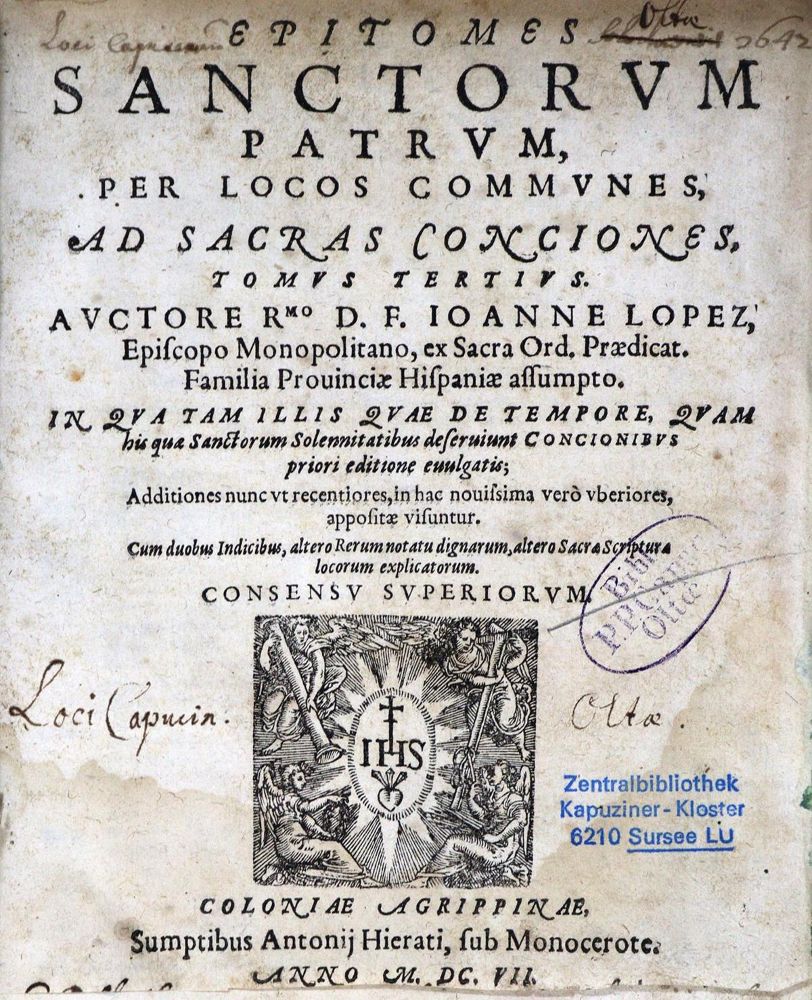 Loci Capucinorum
Oltæ
1647
EPITOMES
SANCTORVM
PATRVM,
PER LOCOS COMMVNES,
AD SACRAS CONCIONES,
TOMVS TERTIVS.
AVCTORE Rᴹᴼ D. F. IOANNE LOPEZ,
Epiſcopo Monopolitano, ex Sacra Ord. Prædicat.
Familia Prouinciæ Hiſpaniæ aſſumpto.
IN QVA TAM ILLIS QVAE DE TEMPORE, QVAM
his quæ Sanctorum Solennitatibus deſeruiunt CONCIONIBVS
priori editione euulgatis;
Additiones nunc vt recentiores, in hac nouiſsima verò vberiores,
appoſitæ viſuntur.
Cum duobus Indicibus, altero Rerum notatu dignarum, altero Sacræ Scripturæ
locorum explicatorum.
CONSENSV SVPERIORVM.
Bibl.
Oltæ
Loci Capucin.
Oltæ.
IHS
Zentralbibliothek
Kapuziner-Kloster
6210 Sursee LU
COLONIAE AGRIPPINAE,
Sumptibus Antonij Hierati, ſub Monocerote.
ANNO M. DC. VII.